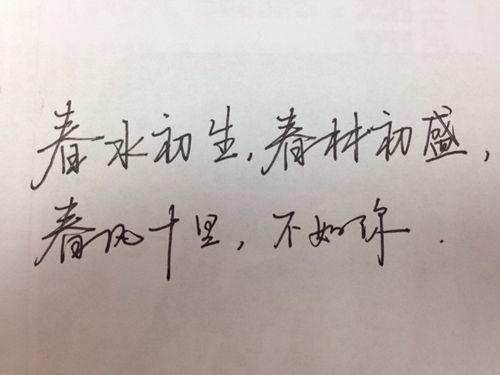 春水初生,春林初盛,
春风十里,不如你.